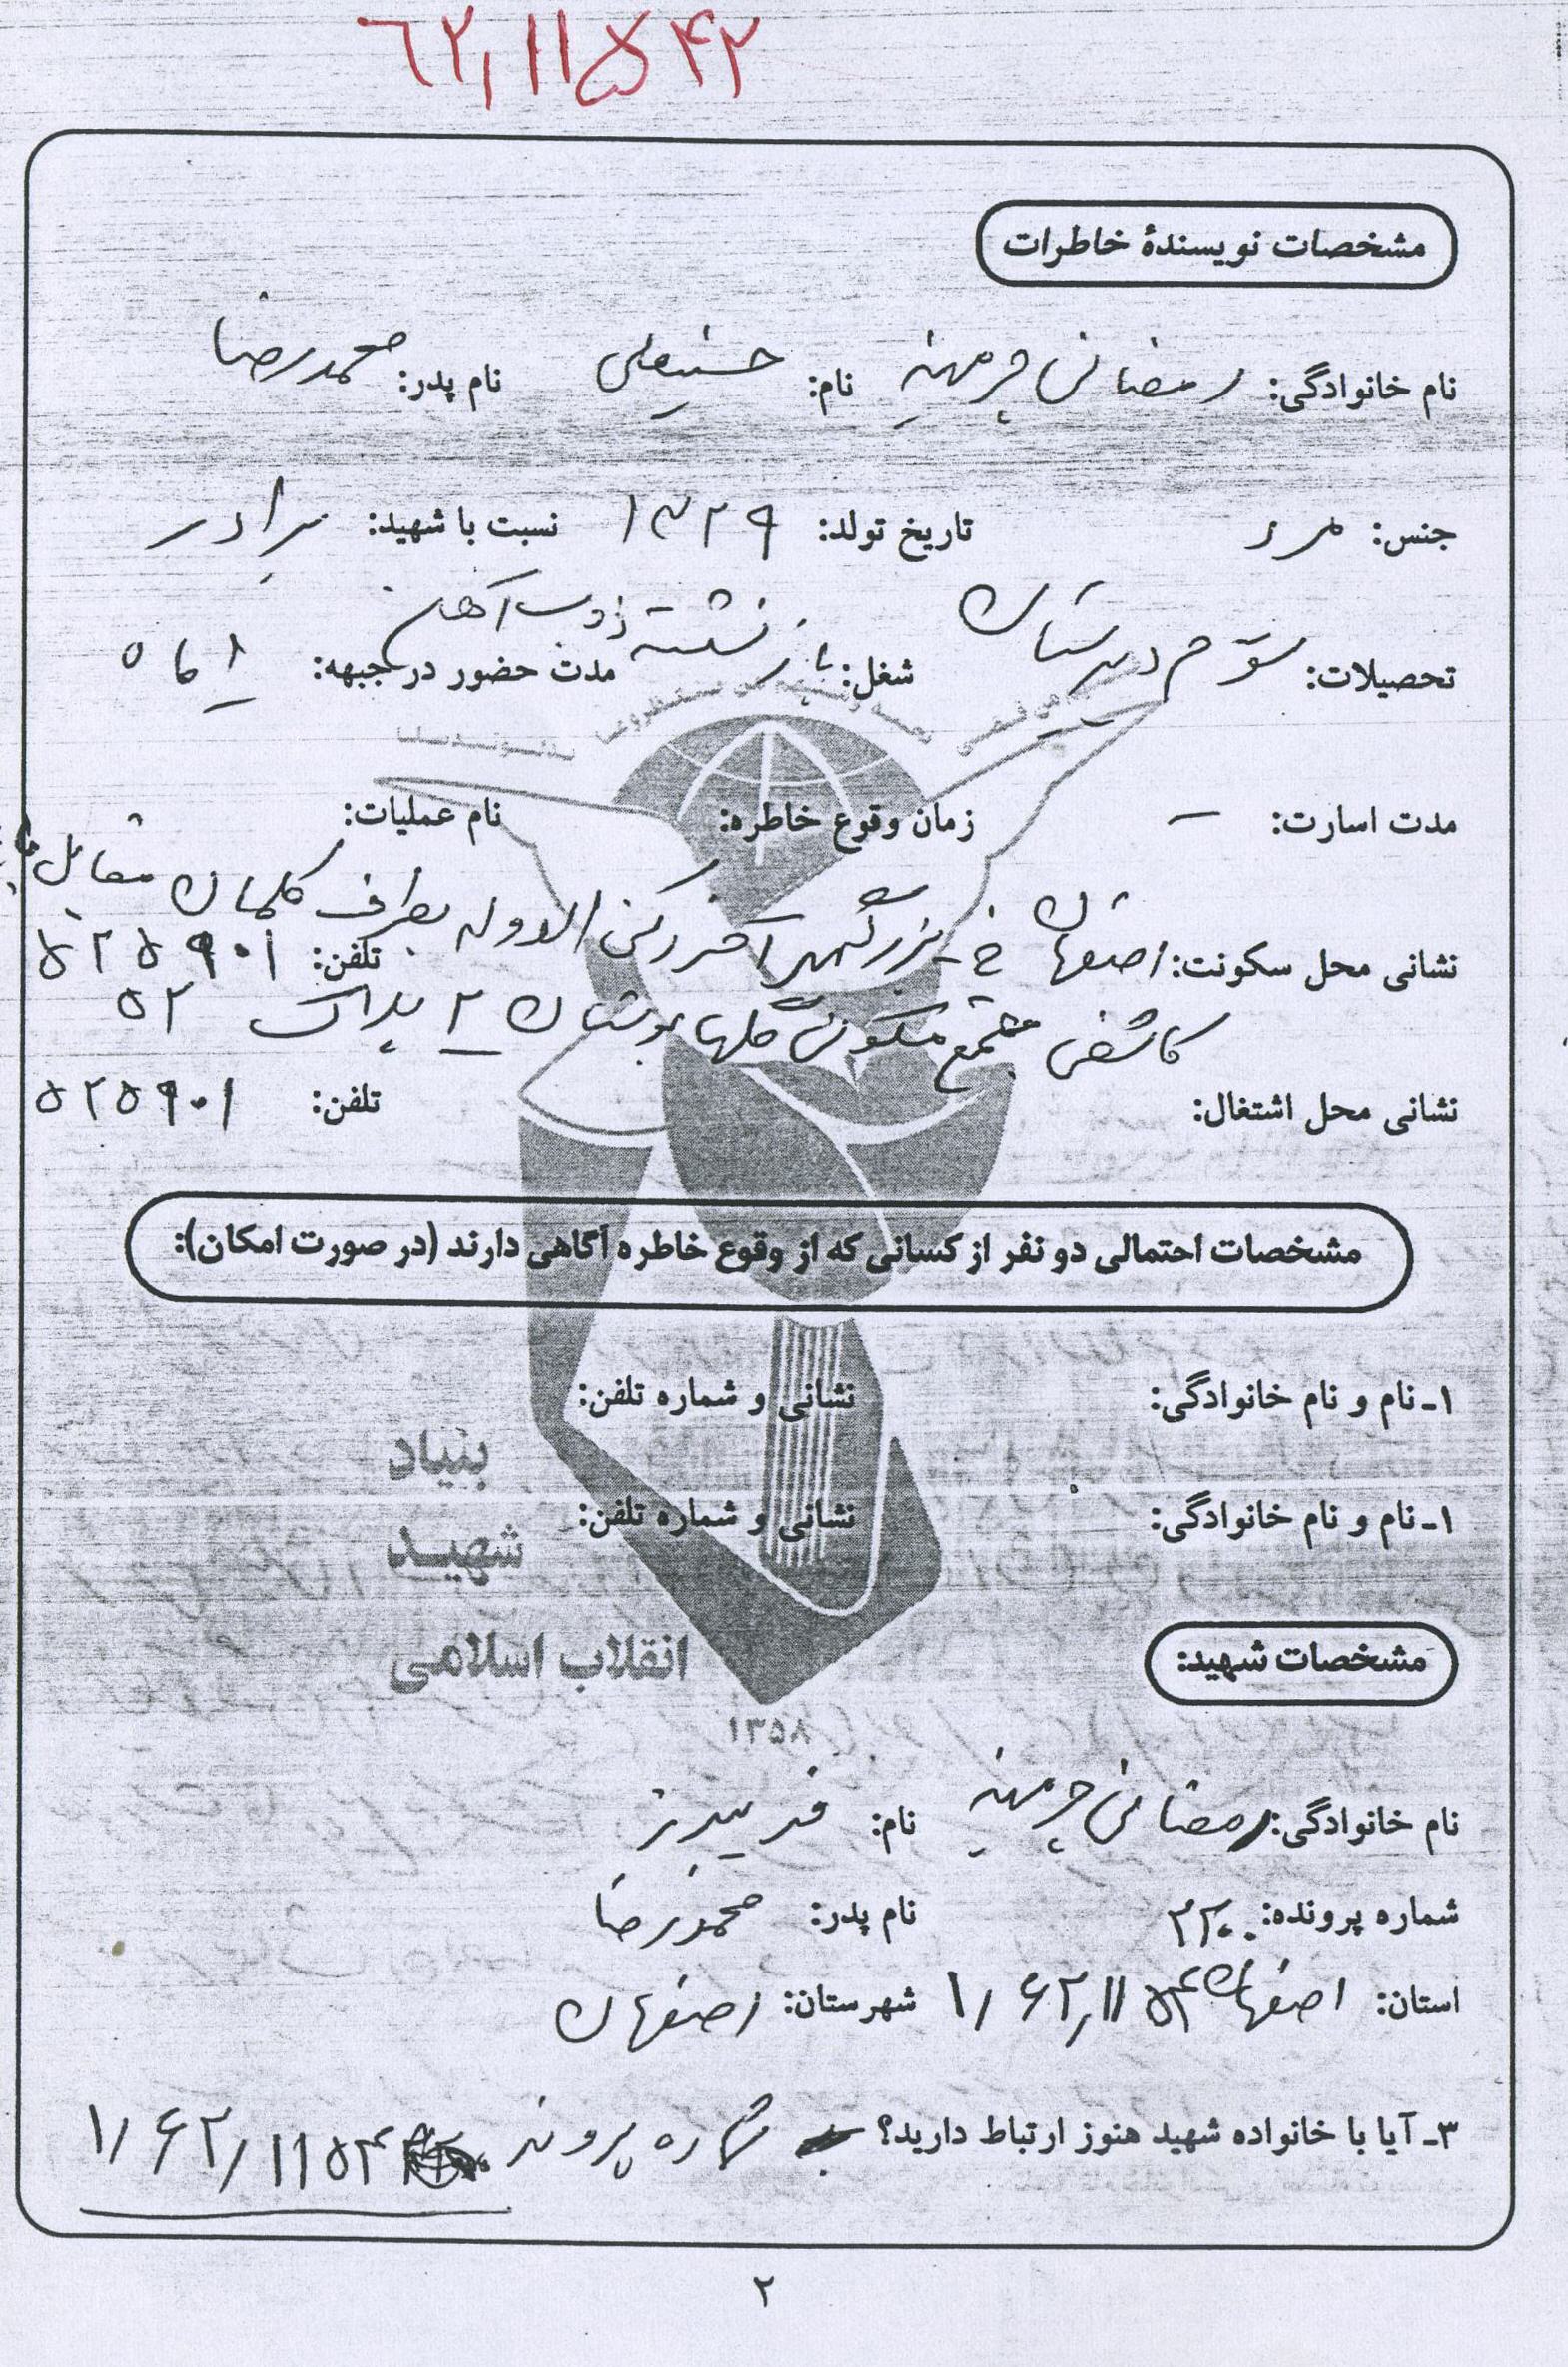 ۶۲٫۱۱۵۴۲
مشخصات نویسندهٔ خاطرات
نام خانوادگی: رمضانی چرمهینی نام: حسینعلی نام پدر: محمدرضا
جنس: مرد تاریخ تولد: ۱۳۲۹ نسبت با شهید: برادر
تحصیلات: سوم دبیرستان شغل: بازنشسته ذوب آهن مدت حضور در جبهه: ۸ ماه
مدت اسارت: – زمان وقوع خاطره: نام عملیات:
نشانی محل سکونت: اصفهان خ - بزرگمهر آخر رکن الدوله بطرف گلها مقابل تلفن: ۵۲۵۹۰۱
کاشفی مجتمع مسکونی گلها بوستان ۲ پلاک ۵۲
نشانی محل اشتغال: تلفن: ۵۲۵۹۰۱
مشخصات احتمالی دو نفر از کسانی که از وقوع خاطره آگاهی دارند (در صورت امکان):
۱ـ نام و نام خانوادگی: نشانی و شماره تلفن:
۱ـ نام و نام خانوادگی: نشانی و شماره تلفن:
بنیاد
شهید
انقلاب اسلامی
۱۳۵۸
مشخصات شهید:
نام خانوادگی: رمضانی چرمهینی نام: فریبرز
شماره پرونده: نام پدر: محمدرضا
استان: اصفهان ۱٫۶۲٫۱۱۵۴۲ شهرستان: اصفهان
۳ـ آیا با خانواده شهید هنوز ارتباط دارید؟ شماره پرونده ۱٫۶۲٫۱۱۵۴۲
۲